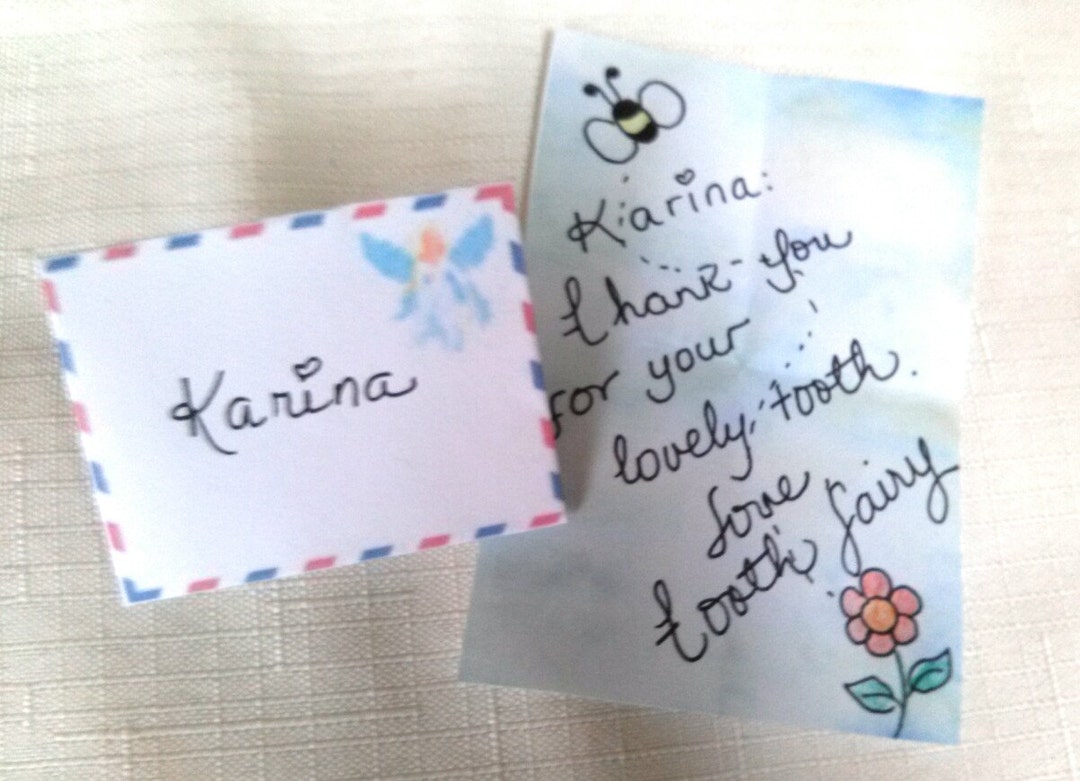 Karina
Karina:
thank you
for your
lovely tooth.
Love
tooth fairy